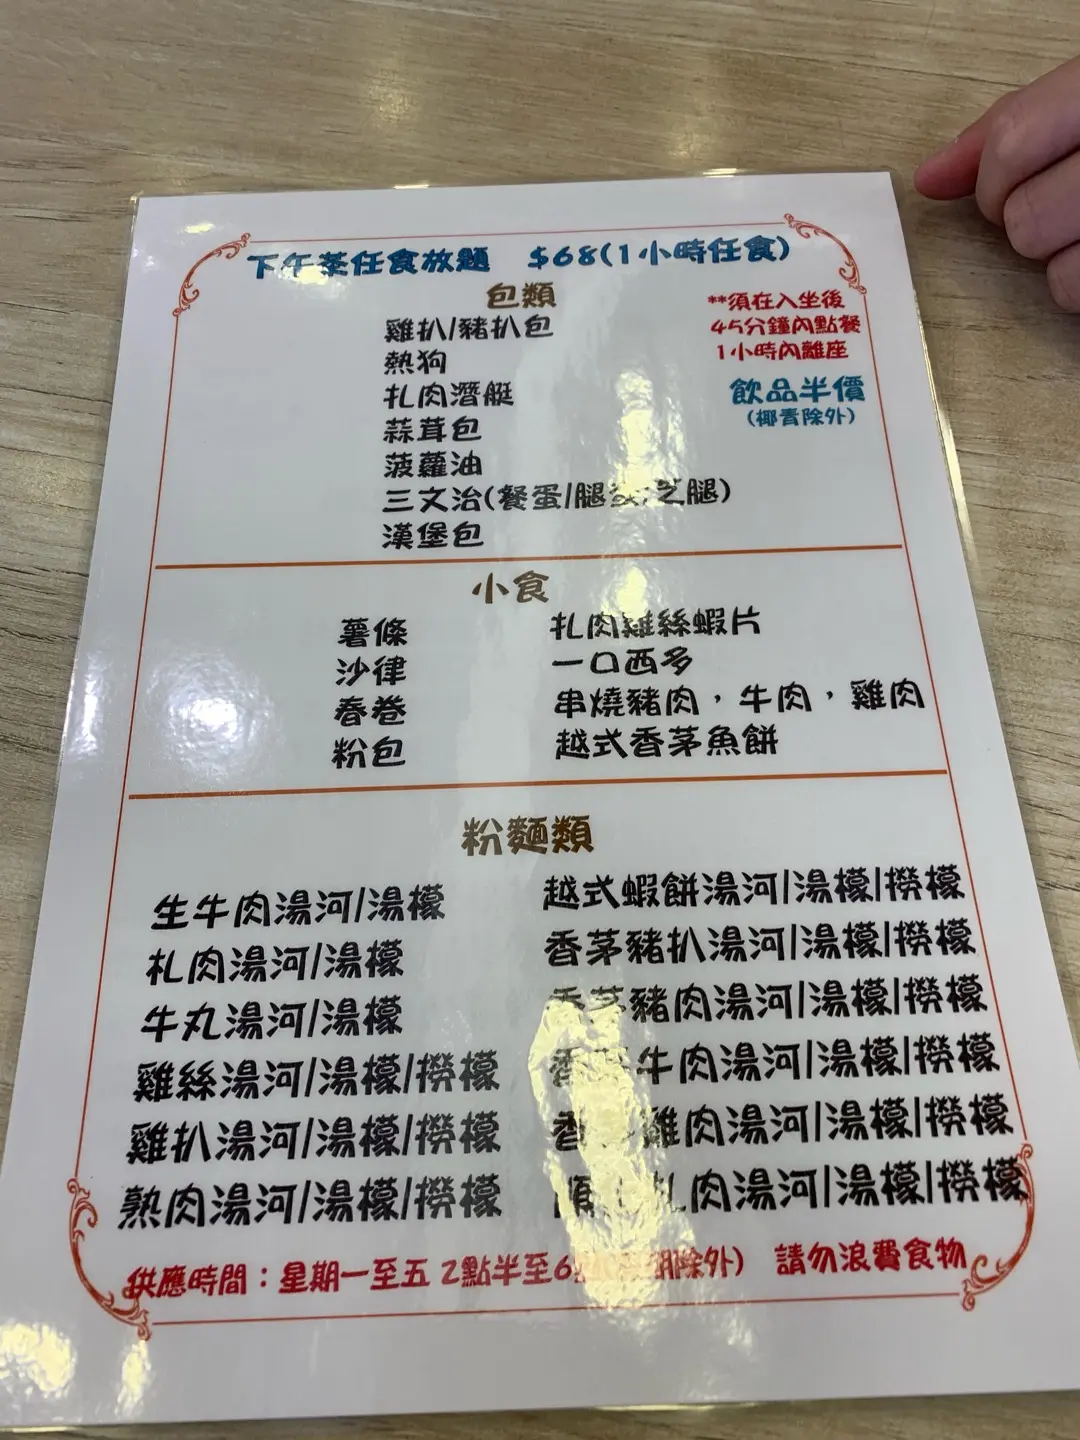 下午茶任食放題 $68(1小時任食)
包類
**須在入坐後
45分鐘內點餐
1小時內離座
飲品半價
(椰青除外)
雞扒/豬扒包
熱狗
扎肉潛艇
蒜茸包
菠蘿油
三文治(餐蛋/腿蛋/芝腿)
漢堡包
小食
薯條
沙律
春卷
粉包
扎肉雞絲蝦片
一口西多
串燒豬肉，牛肉，雞肉
越式香茅魚餅
粉麵類
生牛肉湯河/湯檬
札肉湯河/湯檬
牛丸湯河/湯檬
雞絲湯河/湯檬/撈檬
雞扒湯河/湯檬/撈檬
熟肉湯河/湯檬/撈檬
越式蝦餅湯河/湯檬/撈檬
香茅豬扒湯河/湯檬/撈檬
香茅豬肉湯河/湯檬/撈檬
香茅牛肉湯河/湯檬/撈檬
香茅雞肉湯河/湯檬/撈檬
順 札肉湯河/湯檬/撈檬
供應時間：星期一至五 2點半至6 期除外) 請勿浪費食物